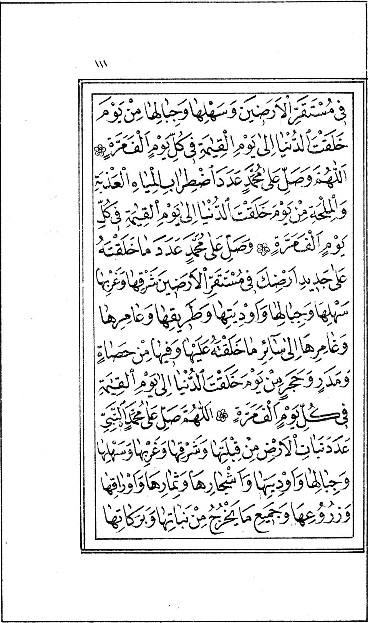 ١١١
فِي مُسْتَقَرِّ الْاَرَضِينَ وَسَهْلِهَا وَجِبَالِهَا مِنْ يَوْمِ
خَلَقْتَ الدُّنْيَا اِلٰى يَوْمِ الْقِيٰمَةِ فِي كُلِّ يَوْمٍ اَلْفَ مَرَّةٍ
اَللّٰهُمَّ وَصَلِّ عَلٰى مُحَمَّدٍ عَدَدَ اضْطِرَابِ الْمِيَاهِ الْعَذْبَةِ
وَالْمِلْحَةِ مِنْ يَوْمِ خَلَقْتَ الدُّنْيَا اِلٰى يَوْمِ الْقِيٰمَةِ فِي كُلِّ
يَوْمٍ اَلْفَ مَرَّةٍ وَصَلِّ عَلٰى مُحَمَّدٍ عَدَدَ مَا خَلَقْتَهُ
عَلٰى جَدِيدِ اَرْضِكَ فِي مُسْتَقَرِّ الْاَرَضِينَ شَرْقِهَا وَغَرْبِهَا
سَهْلِهَا وَجِبَالِهَا وَاَوْدِيَتِهَا وَطَرِيقِهَا وَعَامِرِهَا
وَغَامِرِهَا اِلٰى سَائِرِ مَا خَلَقْتَهُ عَلَيْهَا وَفِيهَا مِنْ حَصَاةٍ
وَمَدَرٍ وَحَجَرٍ مِنْ يَوْمِ خَلَقْتَ الدُّنْيَا اِلٰى يَوْمِ الْقِيٰمَةِ
فِي كُلِّ يَوْمٍ اَلْفَ مَرَّةٍ اَللّٰهُمَّ صَلِّ عَلٰى مُحَمَّدٍ النَّبِيِّ
عَدَدَ نَبَاتِ الْاَرْضِ مِنْ قِبْلَتِهَا وَشَرْقِهَا وَغَرْبِهَا وَسَهْلِهَا
وَجِبَالِهَا وَاَوْدِيَتِهَا وَاَشْجَارِهَا وَثِمَارِهَا وَاَوْرَاقِهَا
وَزُرُوعِهَا وَجَمِيعِ مَا يَخْرُجُ مِنْ نَبَاتِهَا وَبَرَكَاتِهَا